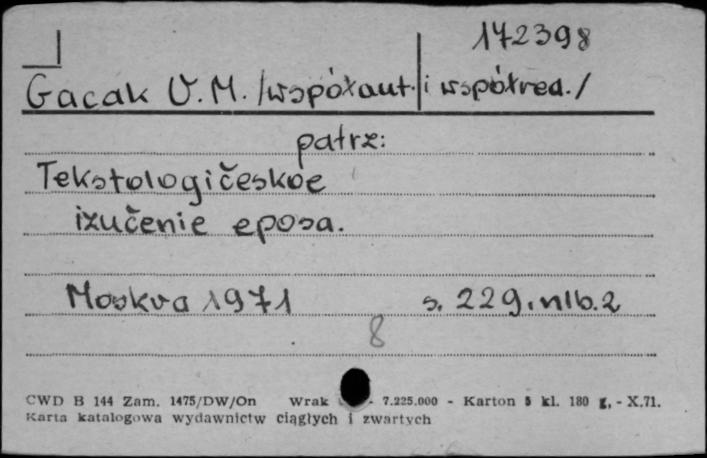 172398
Gacak V. M. /współaut. i współred./
patrz:
Tekstologičeskoe
izučenie eposa.
Moskva 1971 s. 229, nlb. 2
8
CWD B 144 Zam. 1475/DW/On Wrak 7.225.000 - Karton 5 kl. 180 g, - X.71.
Karta katalogowa wydawnictw ciągłych i zwartych